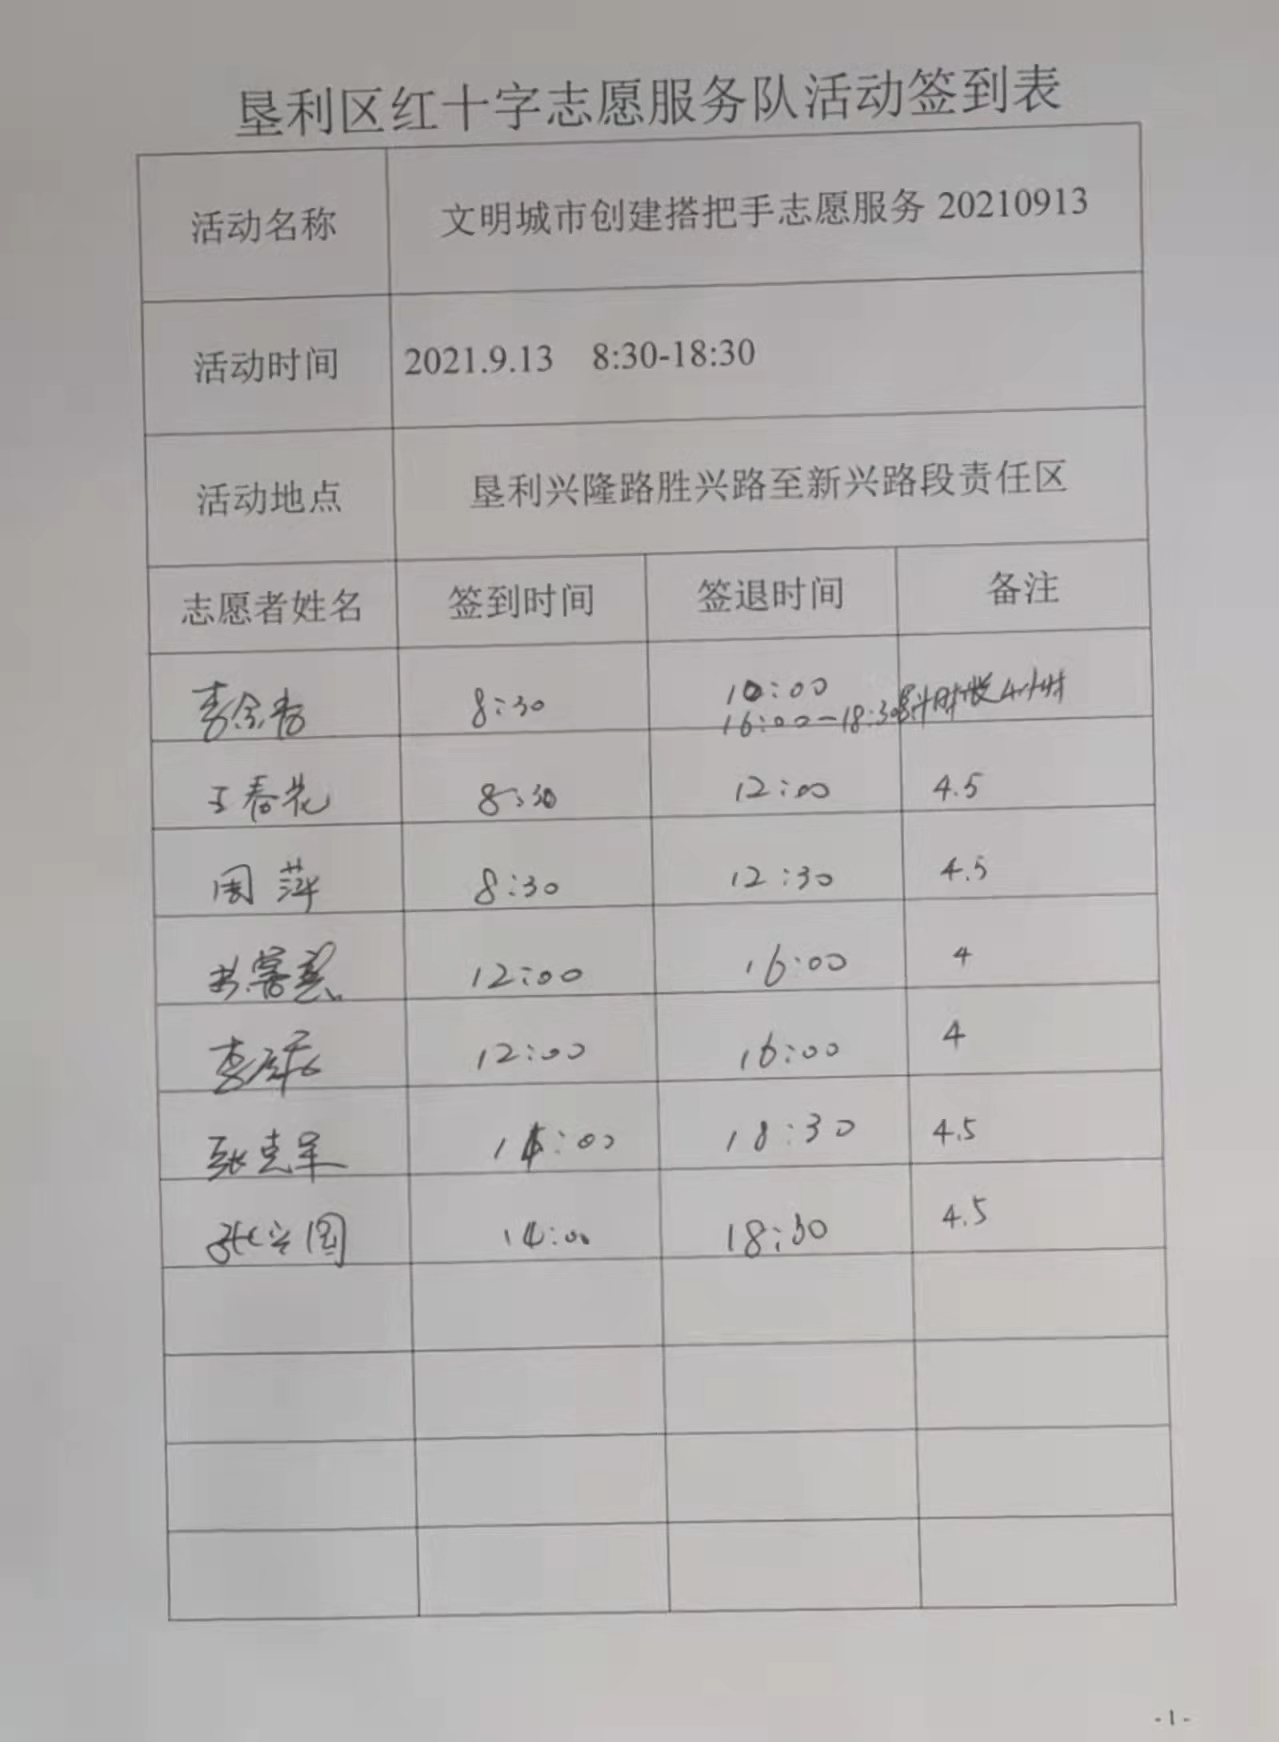 垦利区红十字志愿服务队活动签到表
活动名称 文明城市创建搭把手志愿服务 20210913
活动时间 2021.9.13 8:30-18:30
活动地点 垦利兴隆路胜兴路至新兴路段责任区
志愿者姓名 签到时间 签退时间 备注
8:30 10:00
16:00-18:30 4小时
王春花 8:30 12:00 4.5
周萍 8:30 12:30 4.5
12:00 16:00 4
12:00 16:00 4
张克军 14:00 18:30 4.5
张兴国 14:00 18:30 4.5
- 1 -